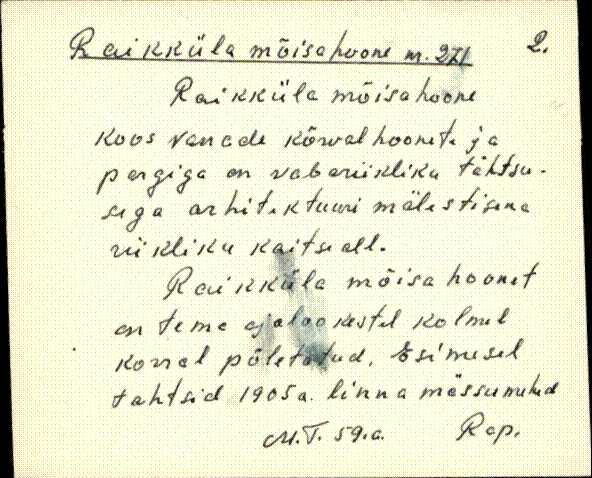 Raikküla mõisahoone nr. 271 2.
Raikküla mõisahoone
koos vanade kõrvalhoonete ja
pargiga on vabariikliku tähtsu-
sega arhitektuuri mälestisena
riikliku kaitse all.
Raikküla mõisa hoonet
on tema ajalookestel kolmel
korral põletatud. Esimesel
tahtsid 1905 a. linna mässumehed
M.T. 59.a. Rap.